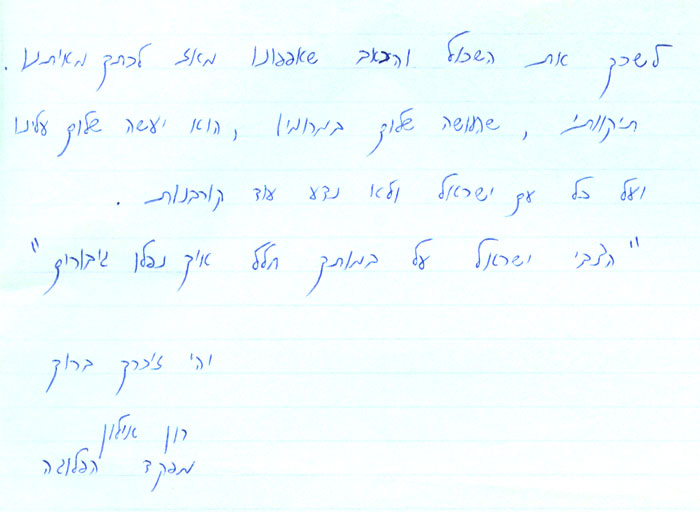 לשכך את השכול והכאב שאפפונו מאז לכתך מאיתנו.
תיקוותי, שהעושה שלום במרומיו, הוא יעשה שלום עלינו
ועל כל עם ישראל ולא נדע עוד קורבנות.
"הצבי ישראל על במותך חלל איך נפלו גיבורים"
יהי זיכרך ברוך
רון אילון
מפקד הפלוגה